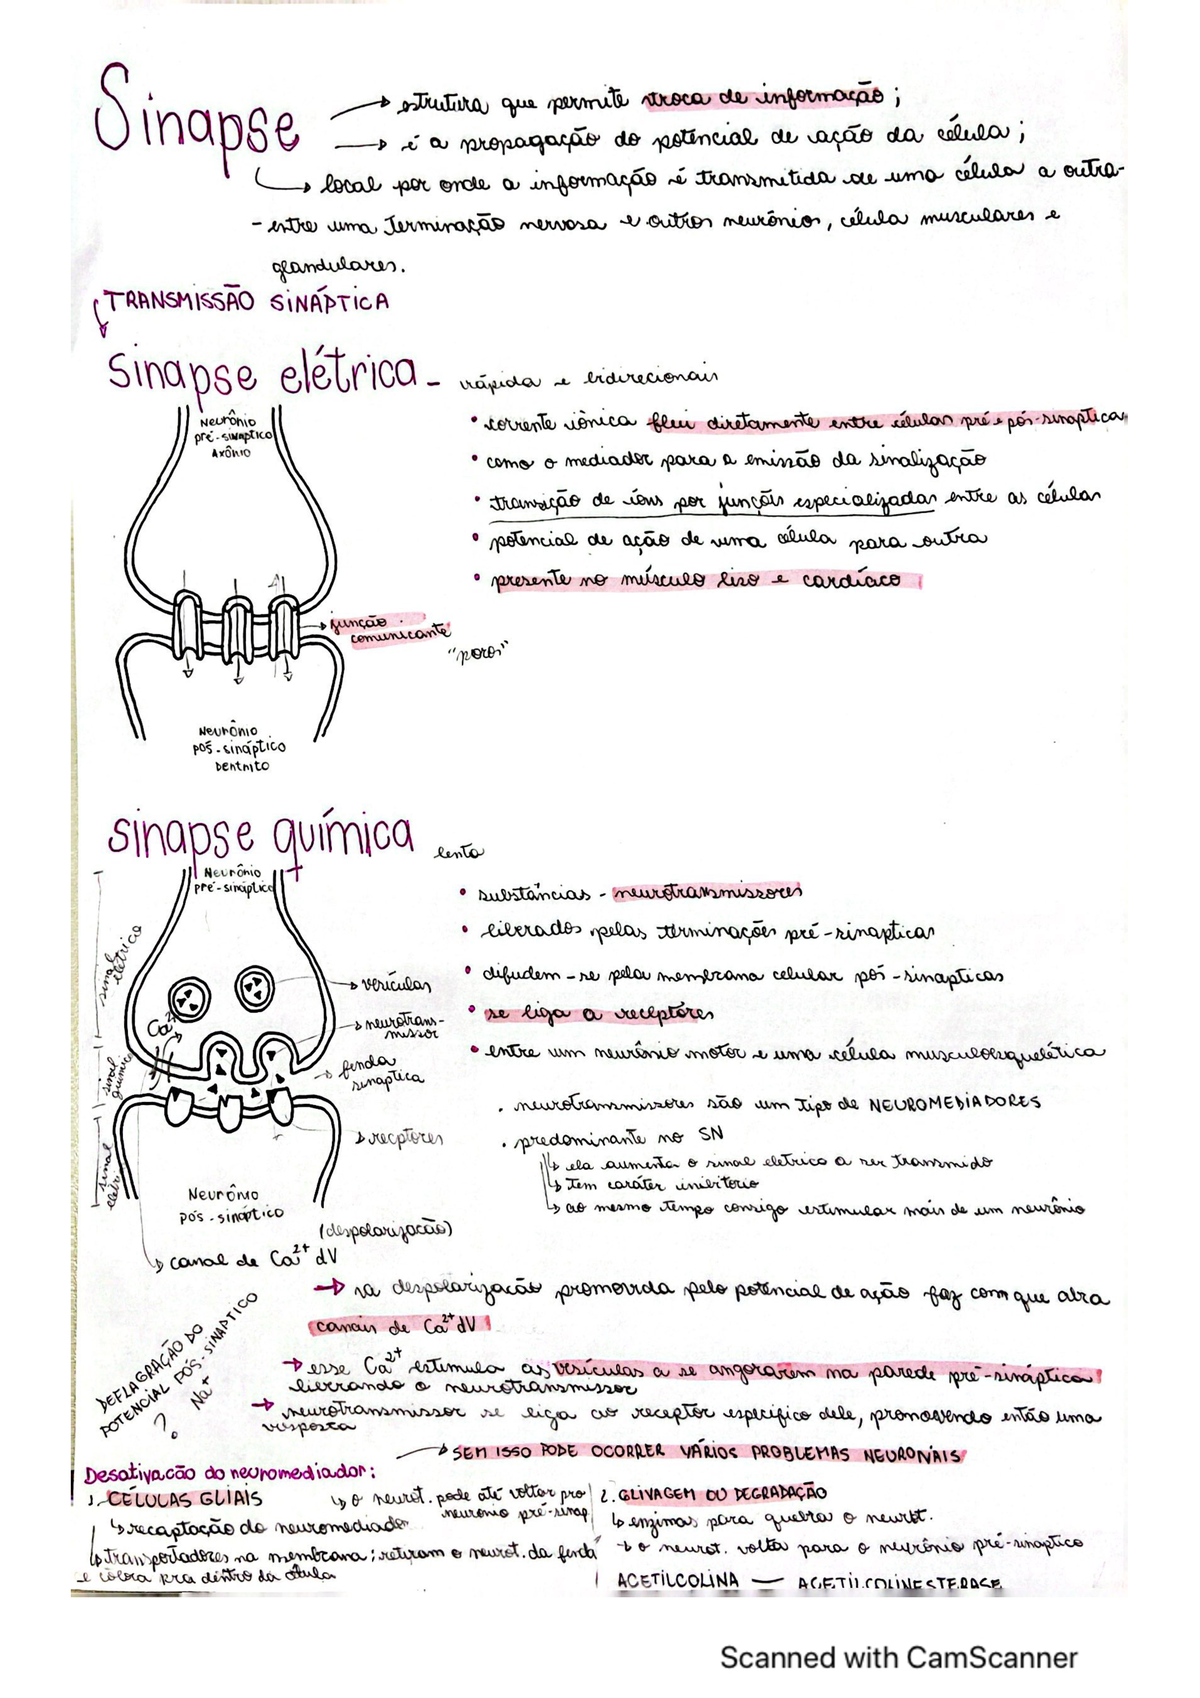 Sinapse
→ estrutura que permite troca de informação;
→ é a propagação do potencial de ação da célula;
↳ local por onde a informação é transmitida de uma célula a outra-
- entre uma Terminação nervosa e outros neurônios, célula musculares e
glandulares.
TRANSMISSÃO SINÁPTICA
Sinapse elétrica - rápida e bidirecionais
Neurônio
pré-sináptico
Axônio
• corrente iônica flui diretamente entre células pré e pós-sinaptica
• como o mediador para a emissão da sinalização
• transição de íons por junções especializadas entre as células
• potencial de ação de uma célula para outra
• presente no músculo liso e cardíaco
→ junção
comunicante
"poros"
Neurônio
pós-sináptico
Dentrito
sinapse química lenta
Neurônio
pré-sináptico
• substâncias - neurotransmissores
• liberados pelas terminações pré-sinapticas
• difudem-se pela membrana celular pós-sinapticas
• se liga a receptores
• entre um neurônio motor e uma célula musculoesquelética
sinal elétrico
sinal químico
sinal elétri
Ca²⁺
→ vesículas
→ neurotrans-
missor
→ fenda
sináptica
→ recptores
. neurotransmissores são um tipo de NEUROMEDIADORES
. predominante no SN
↳ ela aumenta o sinal eletrico a ser transmido
↳ tem caráter inibitorio
↳ ao mesmo tempo consigo estimular mais de um neurônio
Neurônio
pós-sináptico
(despolarizacão)
↳ canal de Ca²⁺ dV
→ na despolarizacão promovida pelo potencial de ação faz com que abra
canais de Ca²⁺ dV
→ esse Ca²⁺ estimula as vesículas a se angorarem na parede pré-sináptica
liberando o neurotransmissor
→ neurotransmissor se liga ao receptor especifico dele, promovendo então uma
resposta
DEFLAGRAÇÃO DO
POTENCIAL PÓS-SINAPTICO
? Na⁺
→ SEM ISSO PODE OCORRER VÁRIOS PROBLEMAS NEURONAIS
Desativacão do neuromediador:
1. CÉLULAS GLIAIS
↳ o neurot. pode até voltar pro
neuronio pré-sinap
↳ recaptação do neuromediador
↳ transportadores na membrana: retiram o neurot. da fenda
e coloca pra dentro da célula
2. GLIVAGEM OU DEGRADAÇÃO
↳ enzimas para quebra o neurot.
↳ o neurot. volta para o neurônio pré-sináptico
ACETILCOLINA — ACETILCOLINESTERASE
Scanned with CamScanner